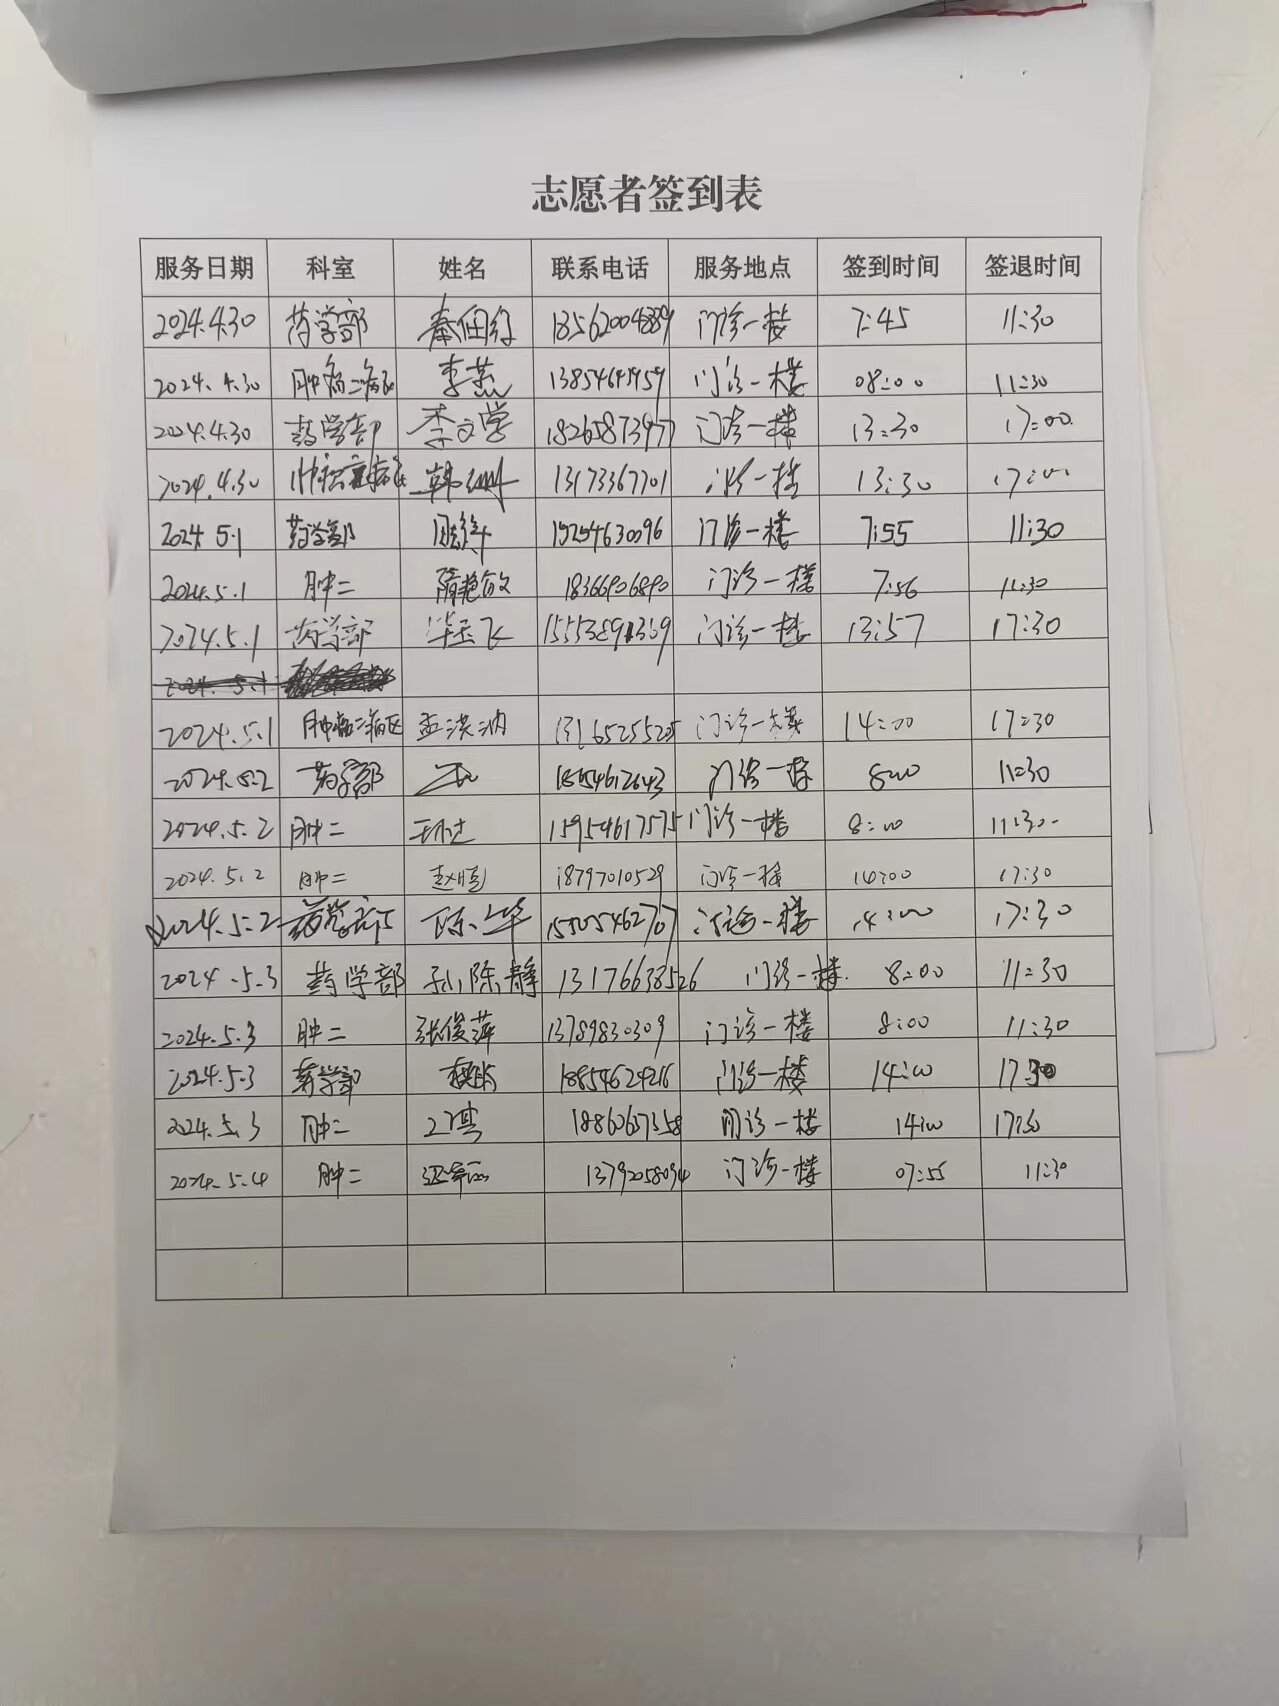 志愿者签到表
服务日期 科室 姓名 联系电话 服务地点 签到时间 签退时间
2024.4.30 药学部 秦佃红 门诊一楼 7:45 11:30
2024.4.30 肿瘤二病区 李燕 门诊一楼 08:00 11:30
2024.4.30 药学部 李文学 18265873977 门诊一楼 13:30 17:00
2024.4.30 13173367701 门诊一楼 13:30 17:00
2024.5.1 药学部 15254630096 门诊一楼 7:55 11:30
2024.5.1 肿二 隋艳敏 18366906890 门诊一楼 7:56 11:30
2024.5.1 药学部 门诊一楼 13:57 17:30
2024.5.1
2024.5.1 肿瘤二病区 孟洪汭 13165255205 门诊一楼 14:00 17:30
2024.5.2 药学部 18554612643 门诊一楼 8:00 11:30
2024.5.2 肿二 15954617575 门诊一楼 8:00 11:30
2024.5.2 肿二 18797010529 门诊一楼 14:00 17:30
2024.5.2 药学部 陈华 15505462707 门诊一楼 14:00 17:30
2024.5.3 药学部 孙陈静 13176638526 门诊一楼 8:00 11:30
2024.5.3 肿二 张俊萍 13789830309 门诊一楼 8:00 11:30
2024.5.3 药学部 18854624216 门诊一楼 14:00 17:30
2024.5.3 肿二 门诊一楼 14:00 17:30
2024.5.4 肿二 13792058094 门诊一楼 07:55 11:30